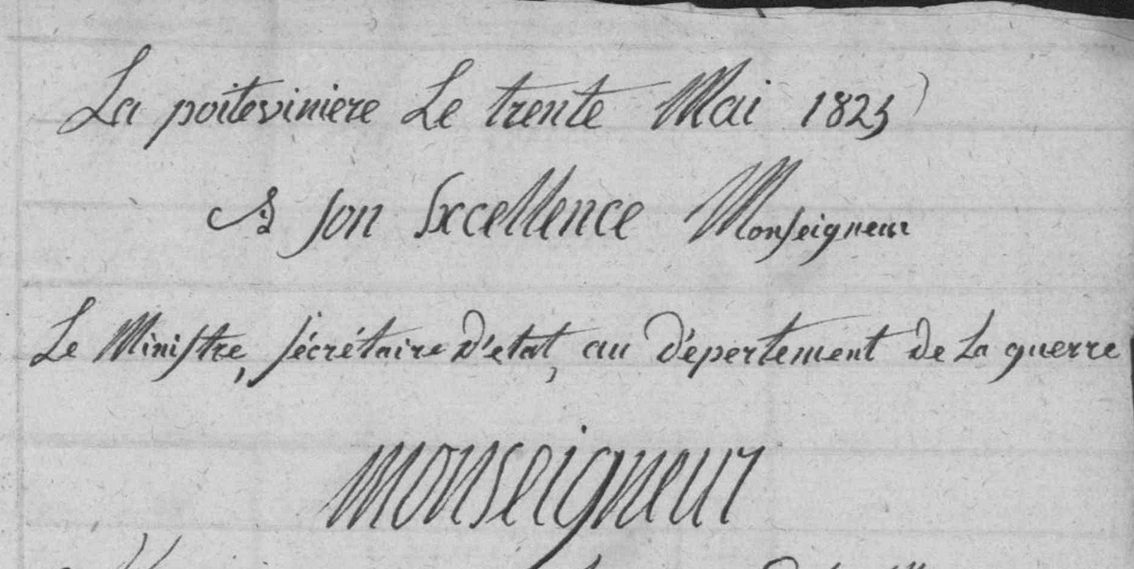 La poiteviniere Le trente Mai 1825
A son Excellence Monseigneur
Le Ministre, sécrétaire d'etat, au dépertement de La guerre
monseigneur